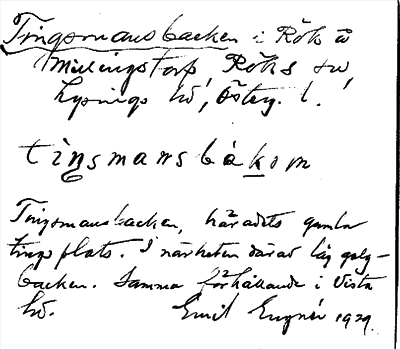 Tingsmansbacken i Rök å
Millingstorp, Röks sn,
Lysings hd, Österg. l.
tiŋsmansbakɘn
Tingsmansbacken, häradets gamla
tingsplats. I närheten därav låg galg-
backen. Samma förhållande i Vista
hd. Emil Engnér 1929.